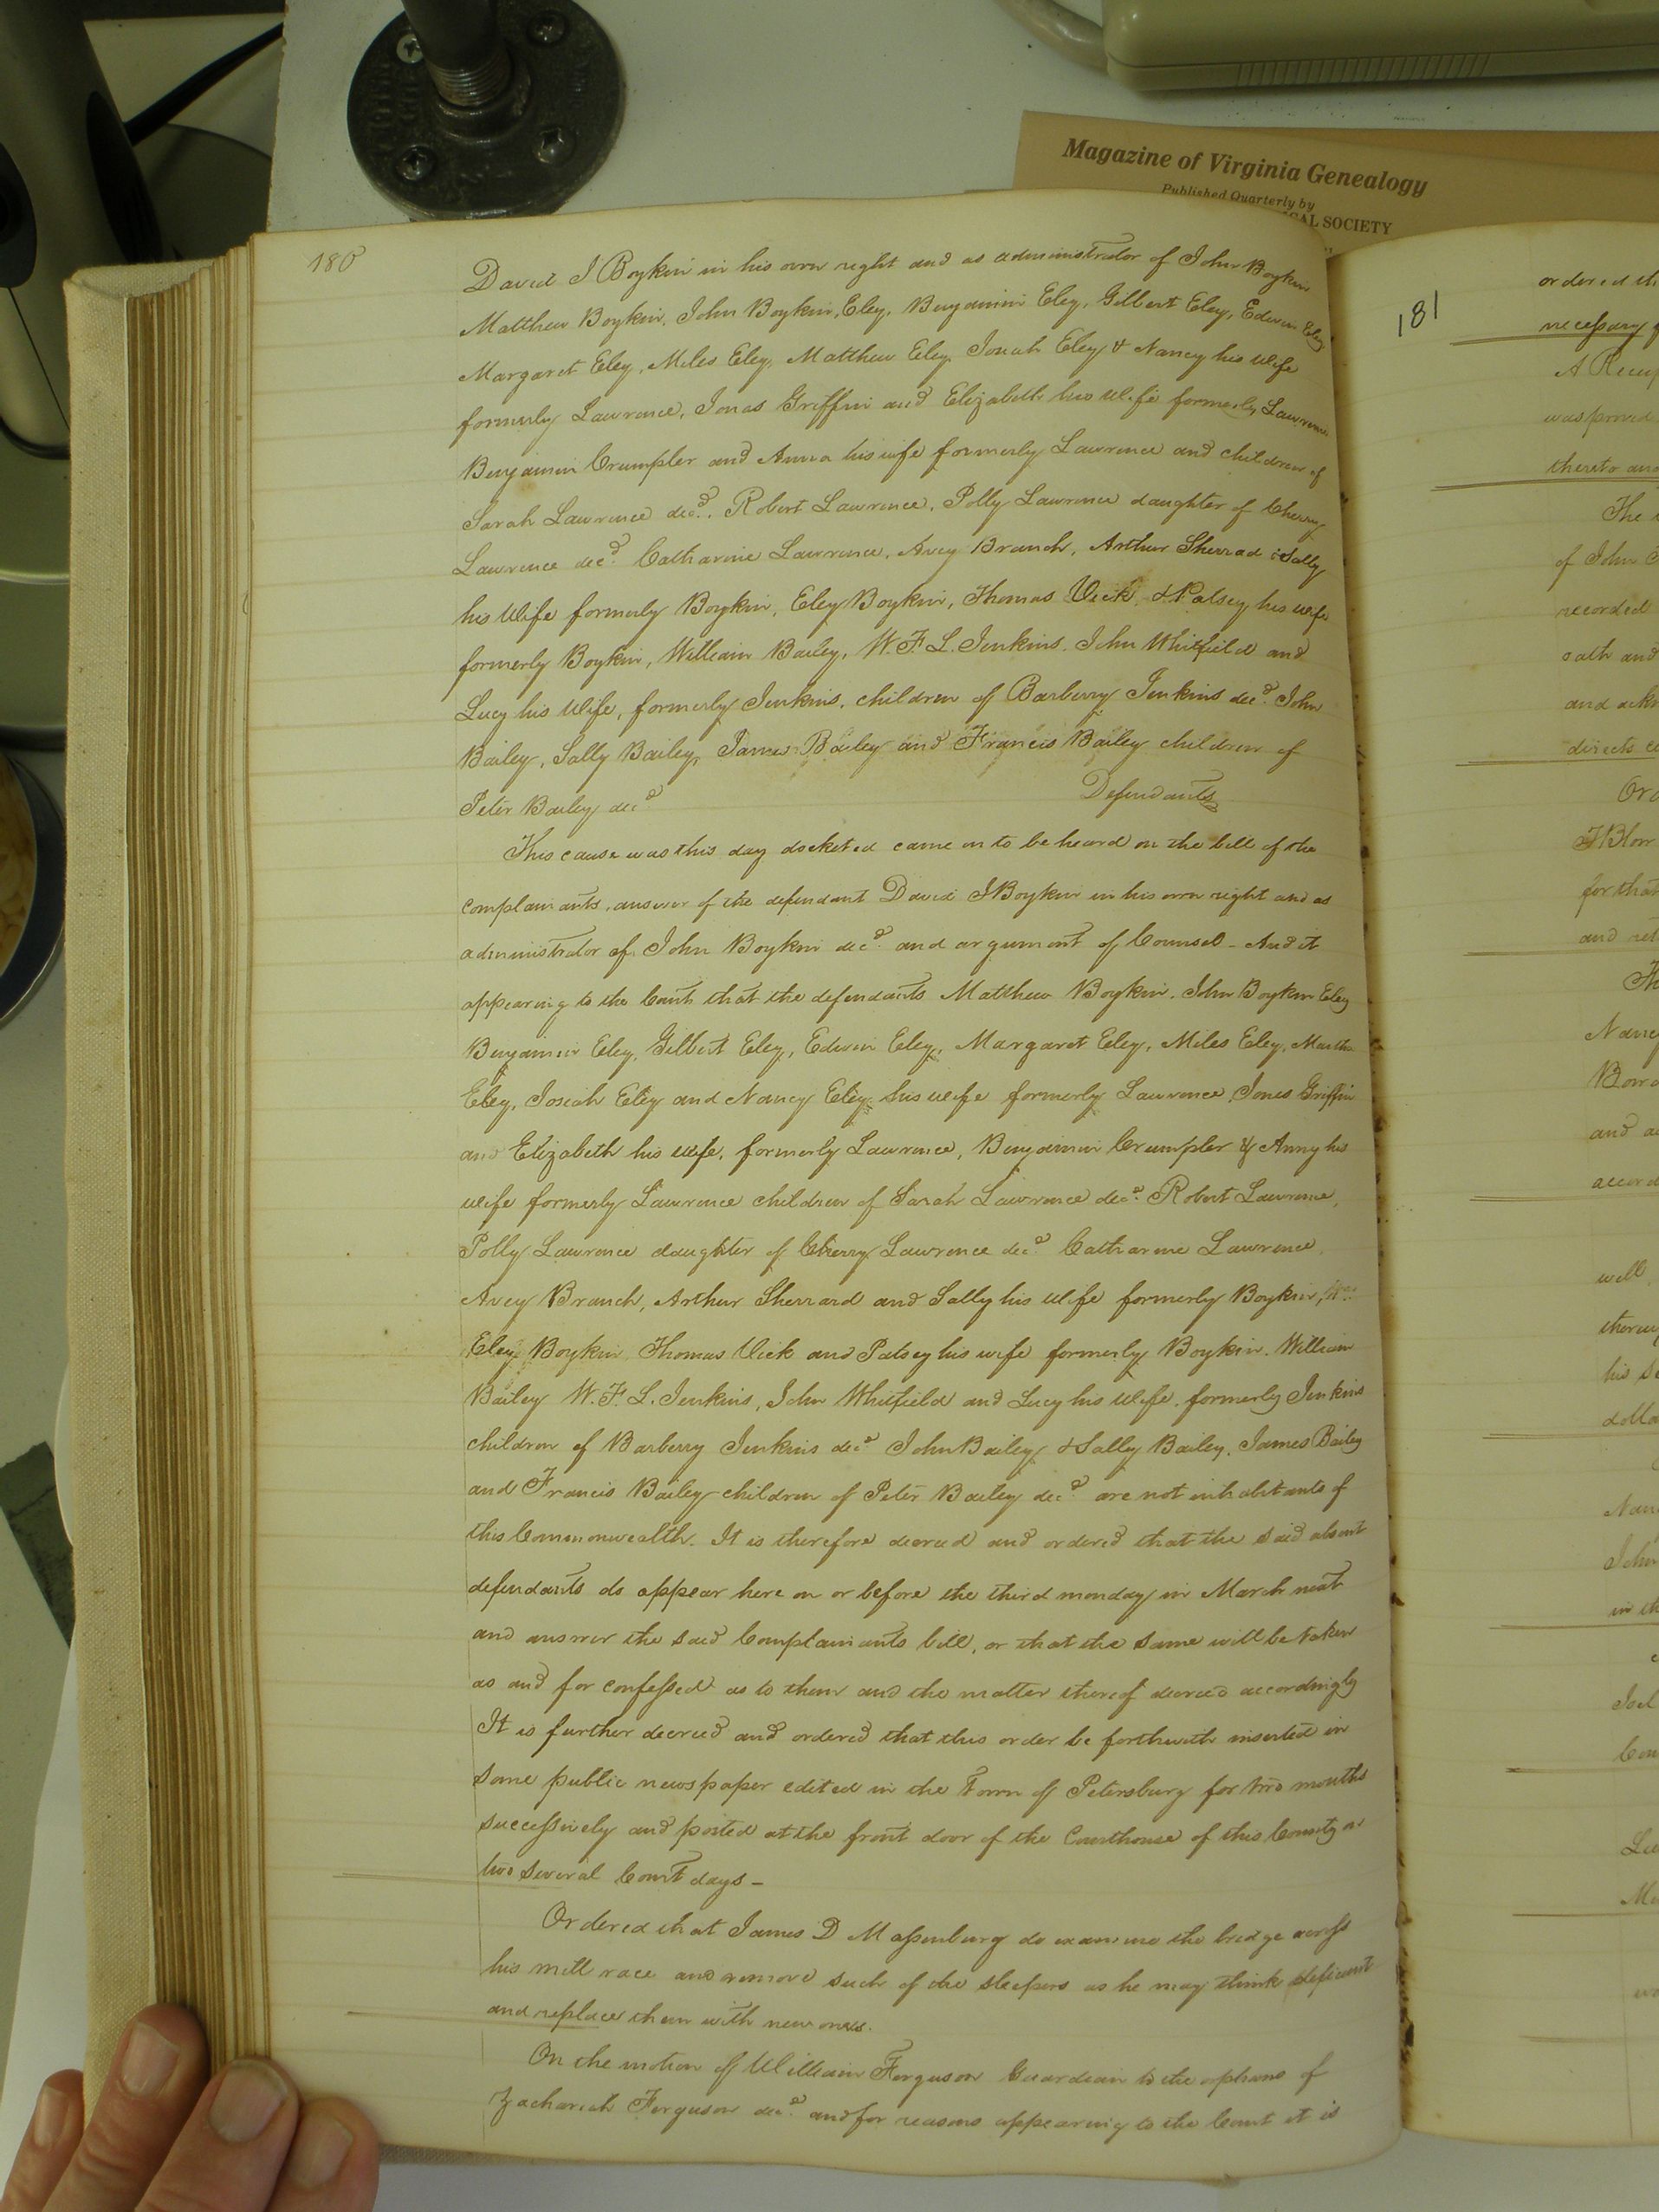 Magazine of Virginia Genealogy
Published Quarterly by
CAL SOCIETY
180
David J Boykin in his own right and as administrator of John Boykin
Matthew Boykin, John Boykin, Eley, Benjamin Eley, Gilbert Eley, Edwin Eley
Margaret Eley, Miles Eley, Matthew Eley, Josiah Eley & Nancy his Wife
formerly Lawrence, Jonas Griffin and Elizabeth his Wife formerly Lawrence
Benjamin Crumpler and Anna his wife formerly Lawrence and children of
Sarah Lawrence decd. Robert Lawrence, Polly Lawrence daughter of Cherry
Lawrence decd. Catharine Lawrence, Avey Branch, Arthur Sherrad & Sally
his Wife formerly Boykin, Eley Boykin, Thomas Vick & Patsey his wife
formerly Boykin, William Bailey, W. F L. Jenkins. John Whitfield and
Lucy his Wife, formerly Jenkins, children of Barberry Jenkins decd. John
Bailey, Sally Bailey, James Bailey and Francis Bailey children of
Peter Bailey decd
Defendants
This cause was this day docketed came on to be heard on the bill of the
complainants, answer of the defendant David J Boykin in his own right and as
administrator of John Boykin decd. and argument of Counsel - And it
appearing to the Court that the defendants Matthew Boykin. John Boykin Eley
Benjamin Eley, Gilbert Eley, Edwin Eley, Margaret Eley, Miles Eley,
Eley, Josiah Eley and Nancy Eley his wife formerly Lawrence, Jonas Griffin
and Elizabeth his wife, formerly Lawrence, Benjamin Crumpler & Anny his
wife formerly Lawrence children of Sarah Lawrence decd. Robert Lawrence,
Polly Lawrence daughter of Cherry Lawrence decd. Catharine Lawrence,
Avey Branch, Arthur Sherrard and Sally his Wife formerly Boykin,
Eley Boykin Thomas Vick and Patsey his wife formerly Boykin. William
Bailey W. F. L. Jenkins, John Whitfield and Lucy his Wife formerly Jenkins
children of Barberry Jenkins decd. John Bailey, & Sally Bailey, James Bailey
and Francis Bailey children of Peter Bailey decd. are not inhabitants of
this Commonwealth. It is therefore decreed and ordered that the said absent
defendants do appear here on or before the third monday in March next
and answer the said Complainants bill, or that the same will be taken
as and for confessed as to them and the matter thereof decreed accordingly
It is further decreed and ordered that this order be forthwith inserted in
some public newspaper edited in the Town of Petersburg for two months
successively and posted at the front door of the Courthouse of this County on
two several Court days -
Ordered that James D Massenburg do examine the bridge across
his mill race and remove such of the sleepers as he may think deficient
and replace them with new ones.
On the motion of William Ferguson Guardian to the orphans of
Zachariah Ferguson decd. and for reasons appearing to the Court it is
181
ordered th
necessary f
was proved
thereto and
The
of John
recorded
oath and
and ackn
directs
Ord
for that
and
Nancy
and
accord
will
his
dolla
John
in th